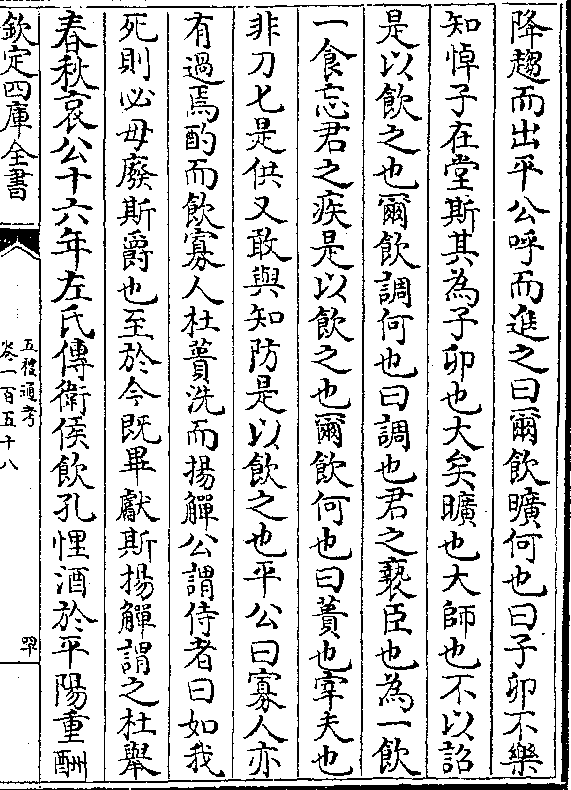 降趨而出平公呼而進之曰爾飲曠何也曰子卯不樂
知悼子在堂斯其為子卯也大矣曠也大師也不以詔
是以飲之也爾飲調何也曰調也君之褻臣也為一飲
一食忘君之疾是以飲之也爾飲何也曰蕢也宰夫也
非刀匕是供又敢與知防是以飲之也平公曰寡人亦
有過焉酌而飲寡人杜蕢洗而揚觶公謂侍者曰如我
死則必毋廢斯爵也至於今既畢獻斯揚觶謂之杜舉
春秋哀公十六年左氏傳衛侯飲孔悝酒於平陽重酬
欽定四庫全書
五禮通考
卷一百五十八